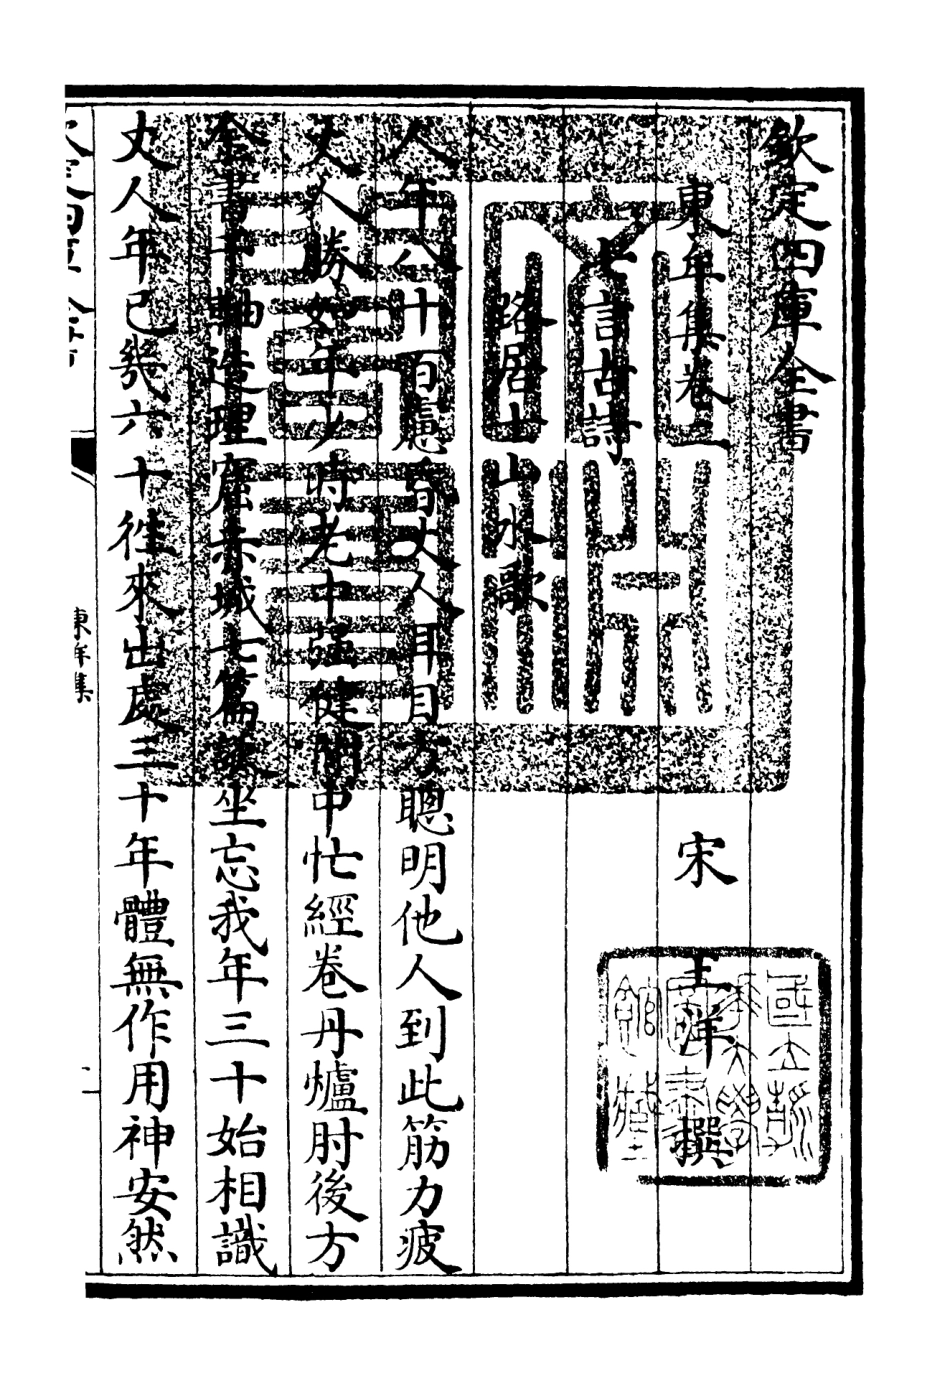 欽定四庫全書
東牟集卷二　宋　王洋　撰
七言古詩
路居士山水歌
人年八十百慮昏丈人耳目方聰明他人到此筋力疲
丈人勝如年少時老中强健閒中忙經卷丹爐肘後方
全書千軸造理窟赤城七篇談坐忘我年三十始相識
丈人年已幾六十往來出處三十年體無作用神安然
東牟集